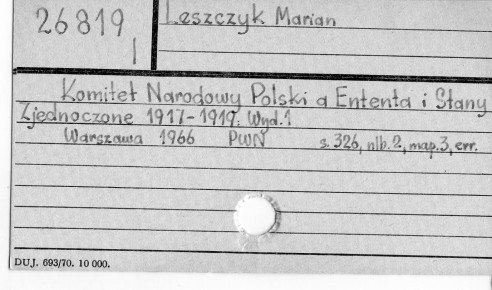 26819
I
Leszczyk Marian
Komitet Narodowy Polski a Ententa i Stany
Zjednoczone 1917-1919. Wyd.1
Warszawa 1966 PWN s.326, nlb.2, map.3, err.
DUJ. 693/70. 10 000.